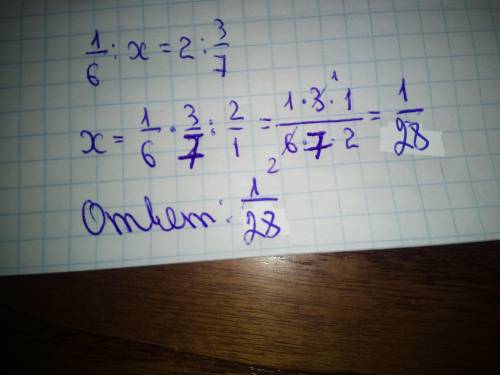 1/6 : x = 2 : 3/7
x = 1/6 · 3/7 : 2/1 = (1 · 3 · 1)/(6 · 7 · 2) = 1/28
1 2
Ответ: 1/28